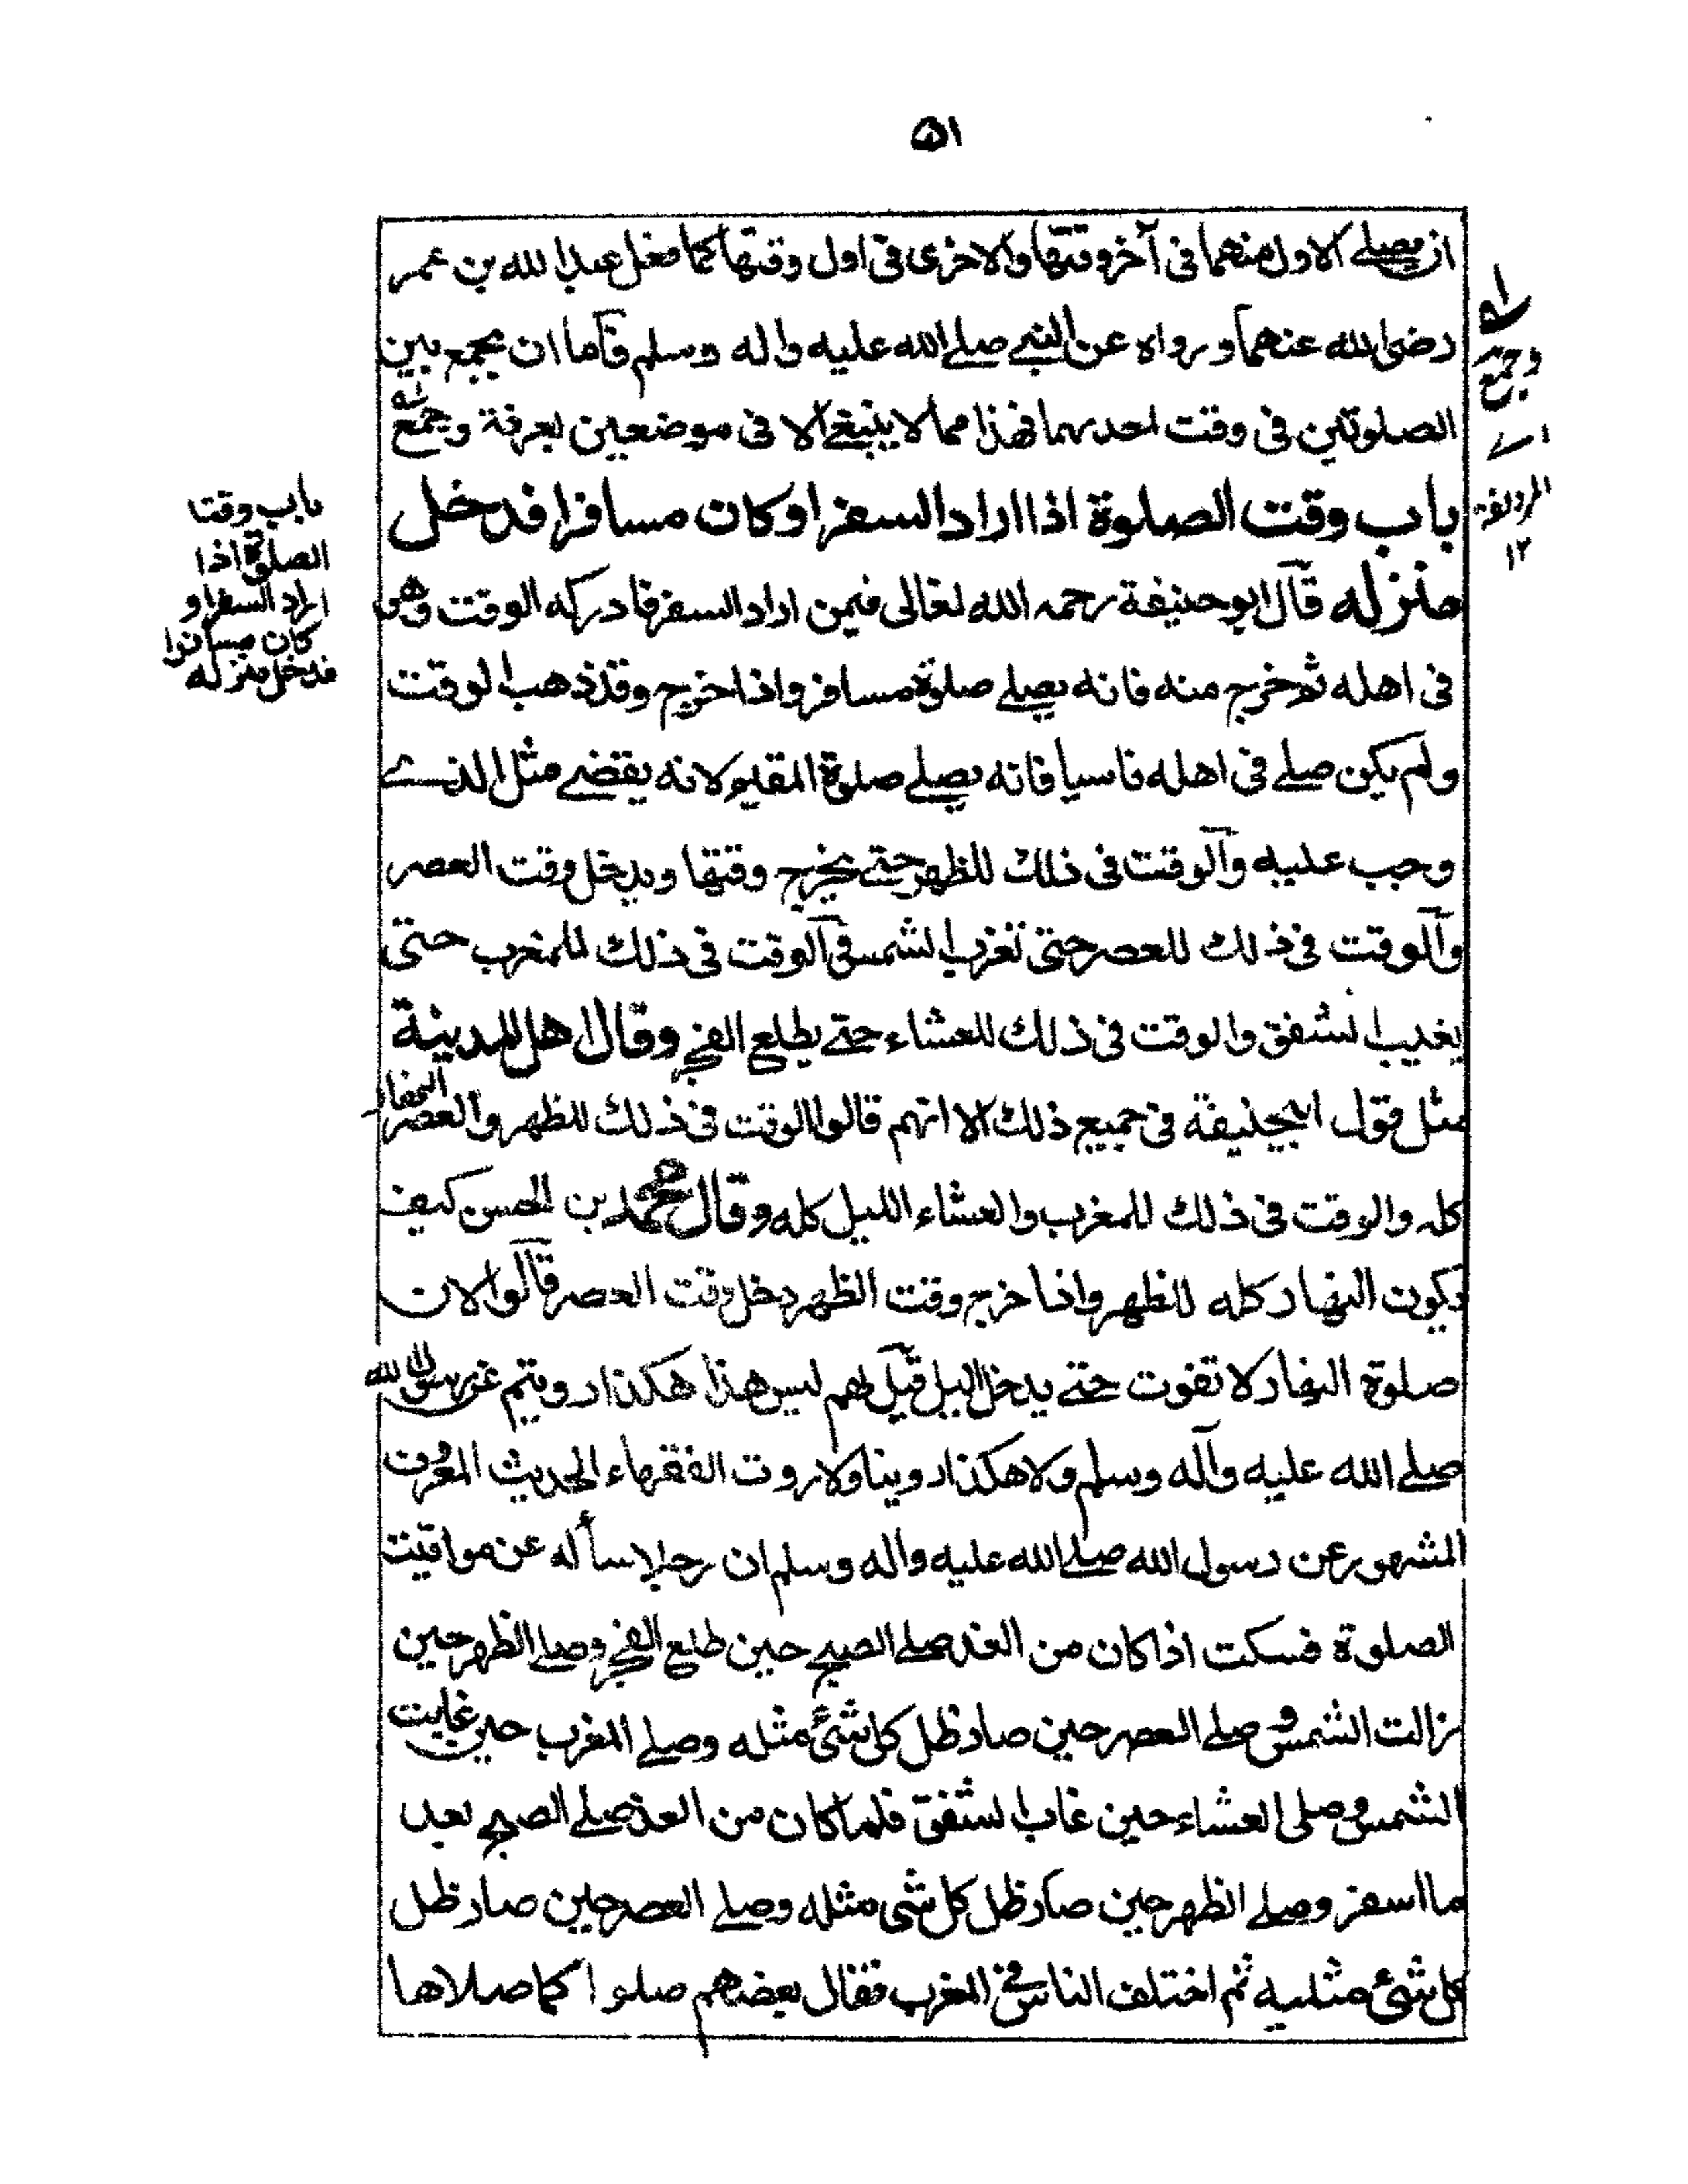 ٥١
ان يصلے الاول منهما فى آخر وقتها والاخرى فى اول وقتها كما فعل عبد الله بن عمر
رضى الله عنهما و رواه عن النبي صلے الله عليه واله وسلم فآما ان يجمع بين
الصلوتين فى وقت احدىهما فهذا مما لا ينبغے الا فى موضعين بعرفة وجمع
باب وقت الصلوة اذا اراد السفر او كان مسافرا فدخل
منزله قآل ابو حنيفة رحمه الله تعالى فيمن اراد السفر فادركه الوقت وهو
فى اهله ثم خرج منه فانه يصلے صلوة مسافر واذا خرج وقد ذهب الوقت
ولم يكن صلے فى اهله ناسيا فانه يصلے صلوة المقيم لانه يقضے مثل الذے
وجب عليه وآلوقت فى ذلك للظهر حتے يخرج وقتها ويدخل وقت العصر
وآلوقت فى ذلك للعصر حتى تغرب الشمس وآلوقت فى ذلك للمغرب حتى
يغيب الشفق والوقت فى ذلك للعشاء حتے يطلع الفجر وقال اهل المدينة
مثل قول ابيحنيفة فى جميع ذلك الا انهم قالوا الوقت فى ذلك للظهر والعصر النهار
كله والوقت فى ذلك للمغرب والعشاء الليل كله وقال محمد بن الحسن كيف
يكون النهار كله للظهر واذا خرج وقت الظهر دخل وقت العصر قآلوا لان
صلوة النهار لا تفوت حتے يدخل الليل قيل لهم ليس هذا هكذا رويتم عن رسول الله
صلے الله عليه وآله وسلم ولا هكذا روينا ولا روت الفقهاء الحديث المعروف
المشهور عن رسول الله صلے الله عليه واله وسلم ان رجلا سأله عن مواقيت
الصلوة فسكت اذا كان من الغد صلے الصبح حين طلع الفجر وصلے الظهر حين
زالت الشمس وصلے العصر حين صار ظل كل شئ مثله وصلے المغرب حين غابت
الشمس وصلى العشاء حين غاب الشفق فلما كان من الغد صلے الصبح بعد
ما اسفر وصلے الظهر حين صار ظل كل شى مثله وصلے العصر حين صار ظل
كل شئ مثليه ثم اختلف الناس فى المغرب فقال بعضهم صلوا كما صلاها
وجمع
المزدلفة
١٢
باب وقت
الصلوة اذا
اراد السفر او
كان مسافرا
فدخل منزله